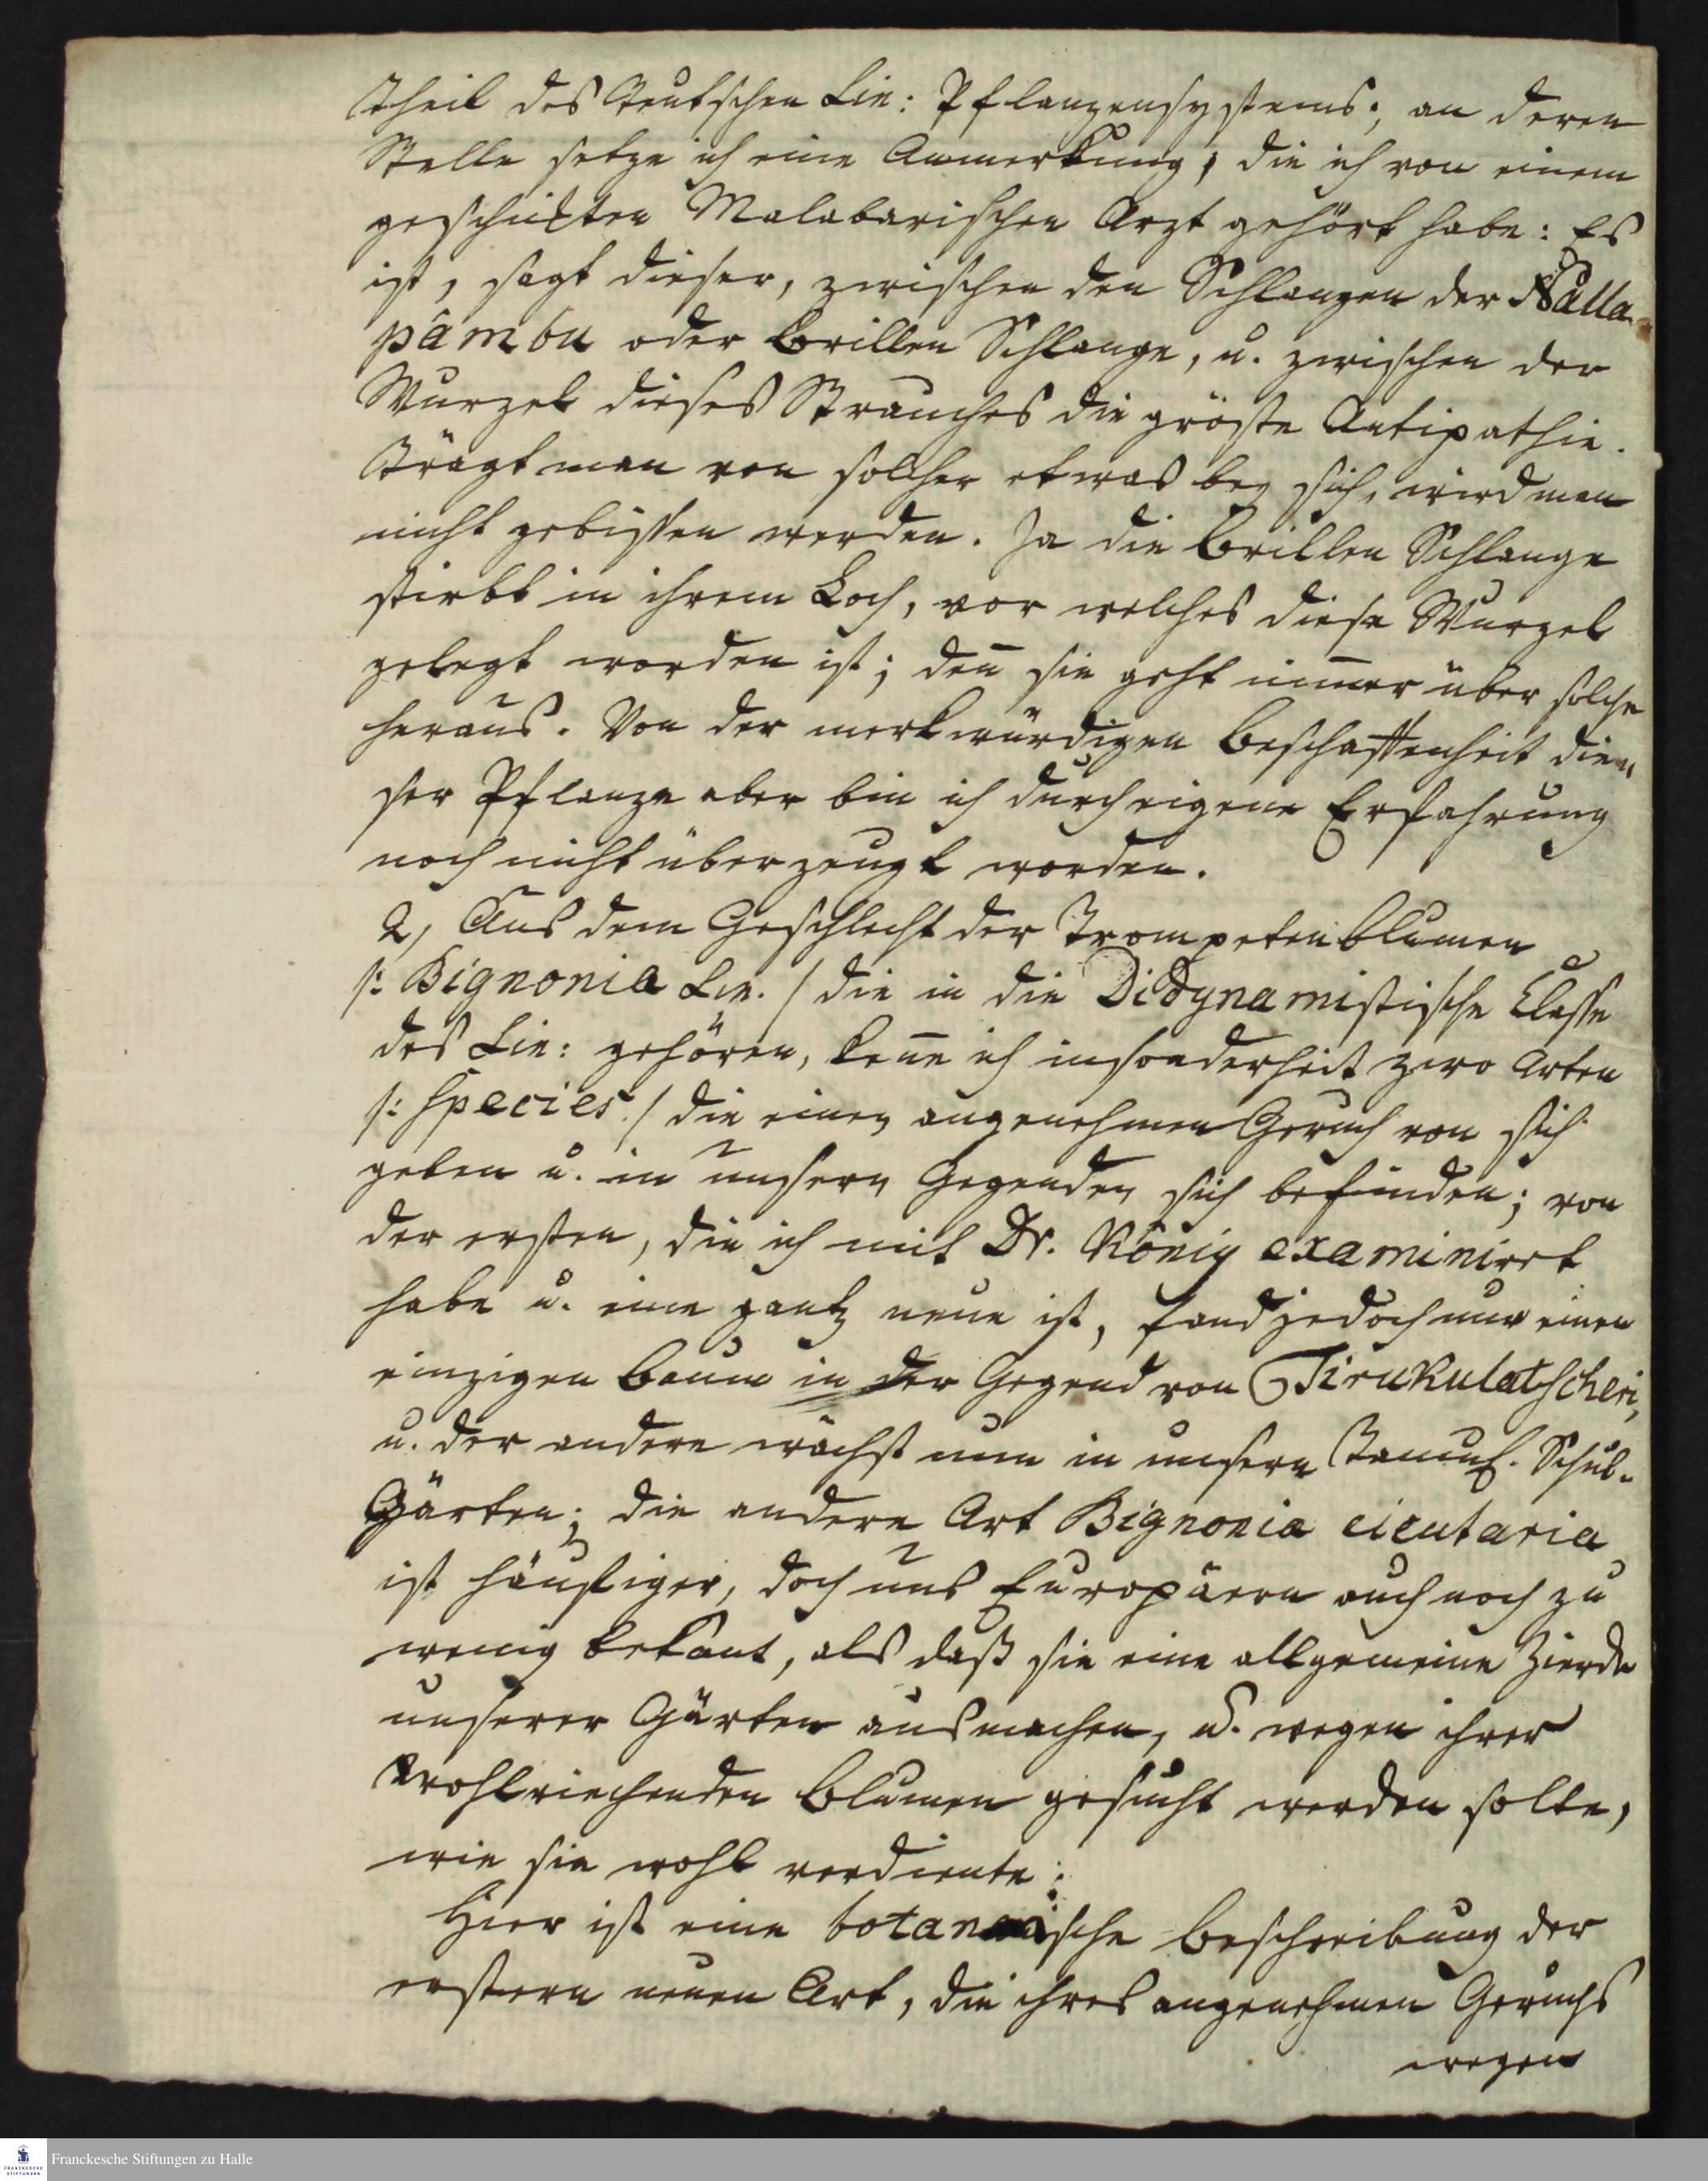 Theil des Teutschen Lin: Pflanzensystems; an deren
Stelle setze ich eine Anmerkung, die ich von einem
geschickten Malabarischen Arzt gehört habe: Es
ist, sagt dieser, zwischen den Schlangen der Nalla
pâmbu oder Brillen Schlange, u. zwischen der
Wurzel dieses Strauches die gröste Antipathie.
Trägt man von solcher etwas bey sich, wird man
nicht gebissen werden. Ja die Brillen Schlange
stirbt in ihrem Loch, vor welches diese Wurzel
gelegt worden ist; den̄ sie geht im̄er über solche
heraus. Von der merkwürdigen Beschaffenheit die„
ser Pflanze aber bin ich durch eigene Erfahrung
noch nicht überzeugt worden.
2, Aus dem Geschlecht der Trompetenblumen
/: Bignonia Lin. / die in die Didynamistische Classe
des Lin: gehören, ken̄e ich insonderheit zwo Arten
/: Species / die einen angenehmen Geruch von sich
geben u. in unsern Gegenden sich befinden; von
der ersten, die ich mit Dr. König examinirt
habe u. eine gantz neue ist, fand jedoch nur einen
einzigen Baum in der Gegend von Tirukulatscheri,
u. der andere wächst nun in unsern Tamul. Schul-
Gärten; die andere Art Bignonia cicutaria
ist häufiger, doch uns Europäern auch noch zu
wenig bekant, als daß sie eine allgemeine Zierde
unserer Gärten ausmachen, u. wegen ihrer
wohlriechenden Blumen gesucht werden solte,
wie sie wohl verdiente:
Hier ist eine botanische Beschreibung der
erstern neuen Art, die ihres angenehmen Geruchs
wegen
Franckesche Stiftungen zu Halle